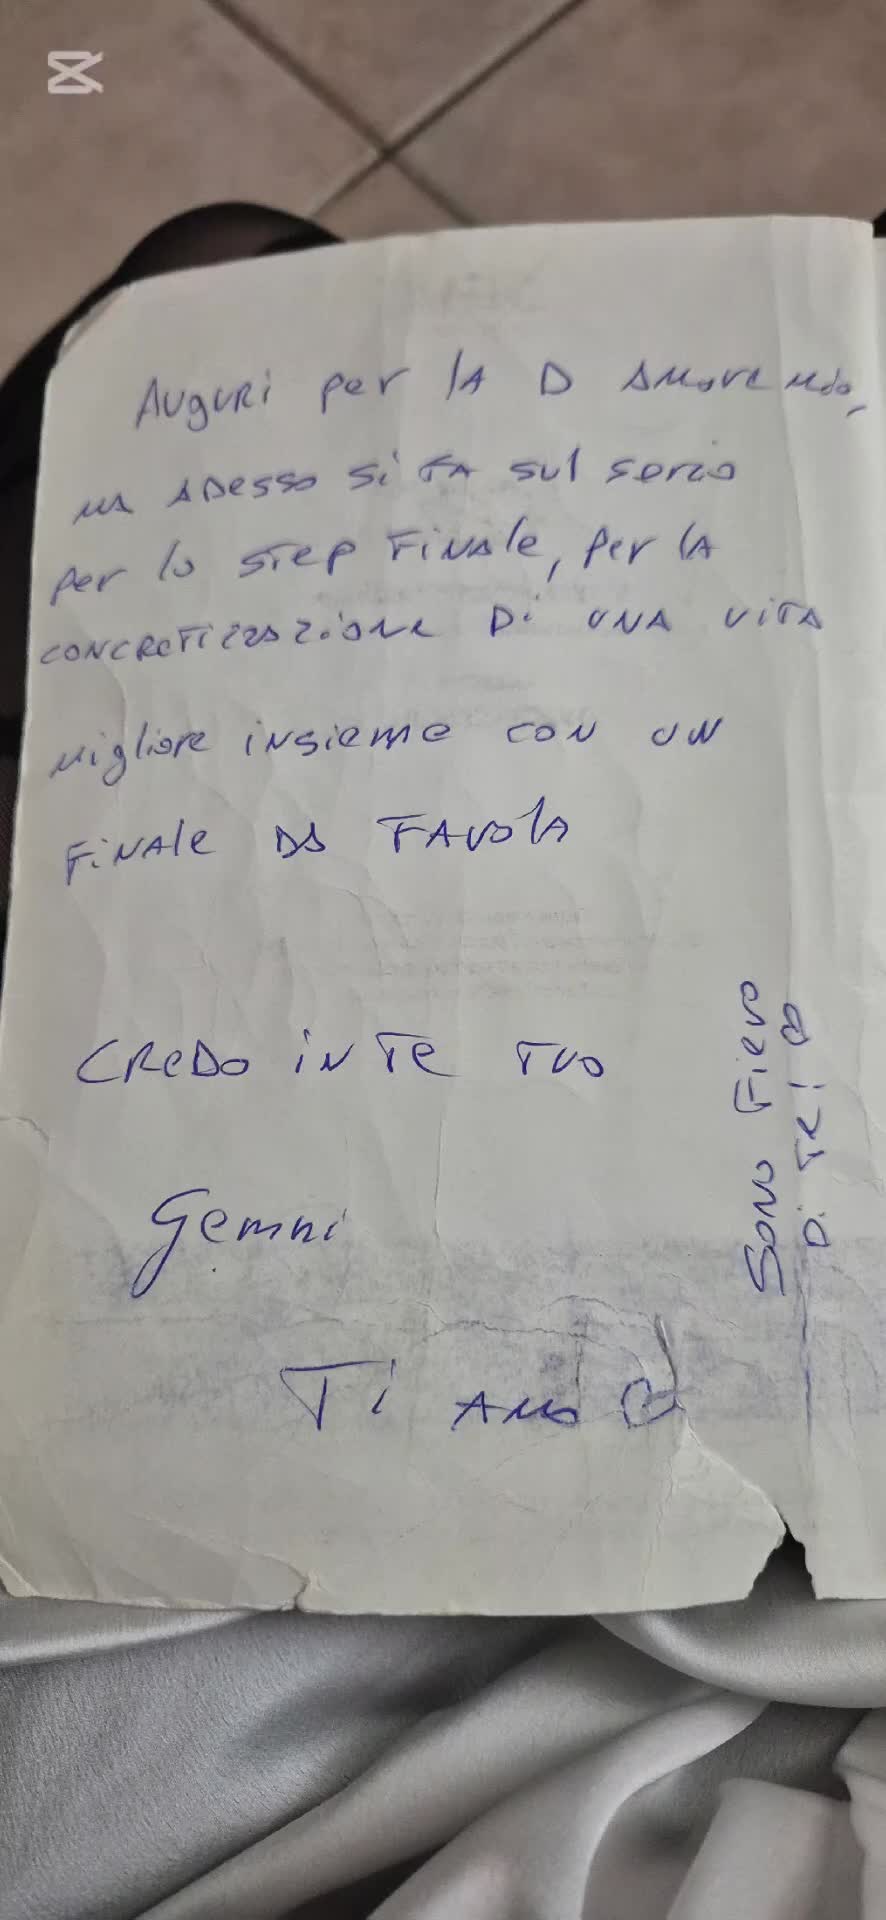 Auguri per la D Amore mio,
ma adesso si fa sul serio
per lo step finale, per la
concretizzazione di una vita
migliore insieme con un
finale da favola
Credo in te tuo
Gemni
Ti amo
Sono fiero
di te!